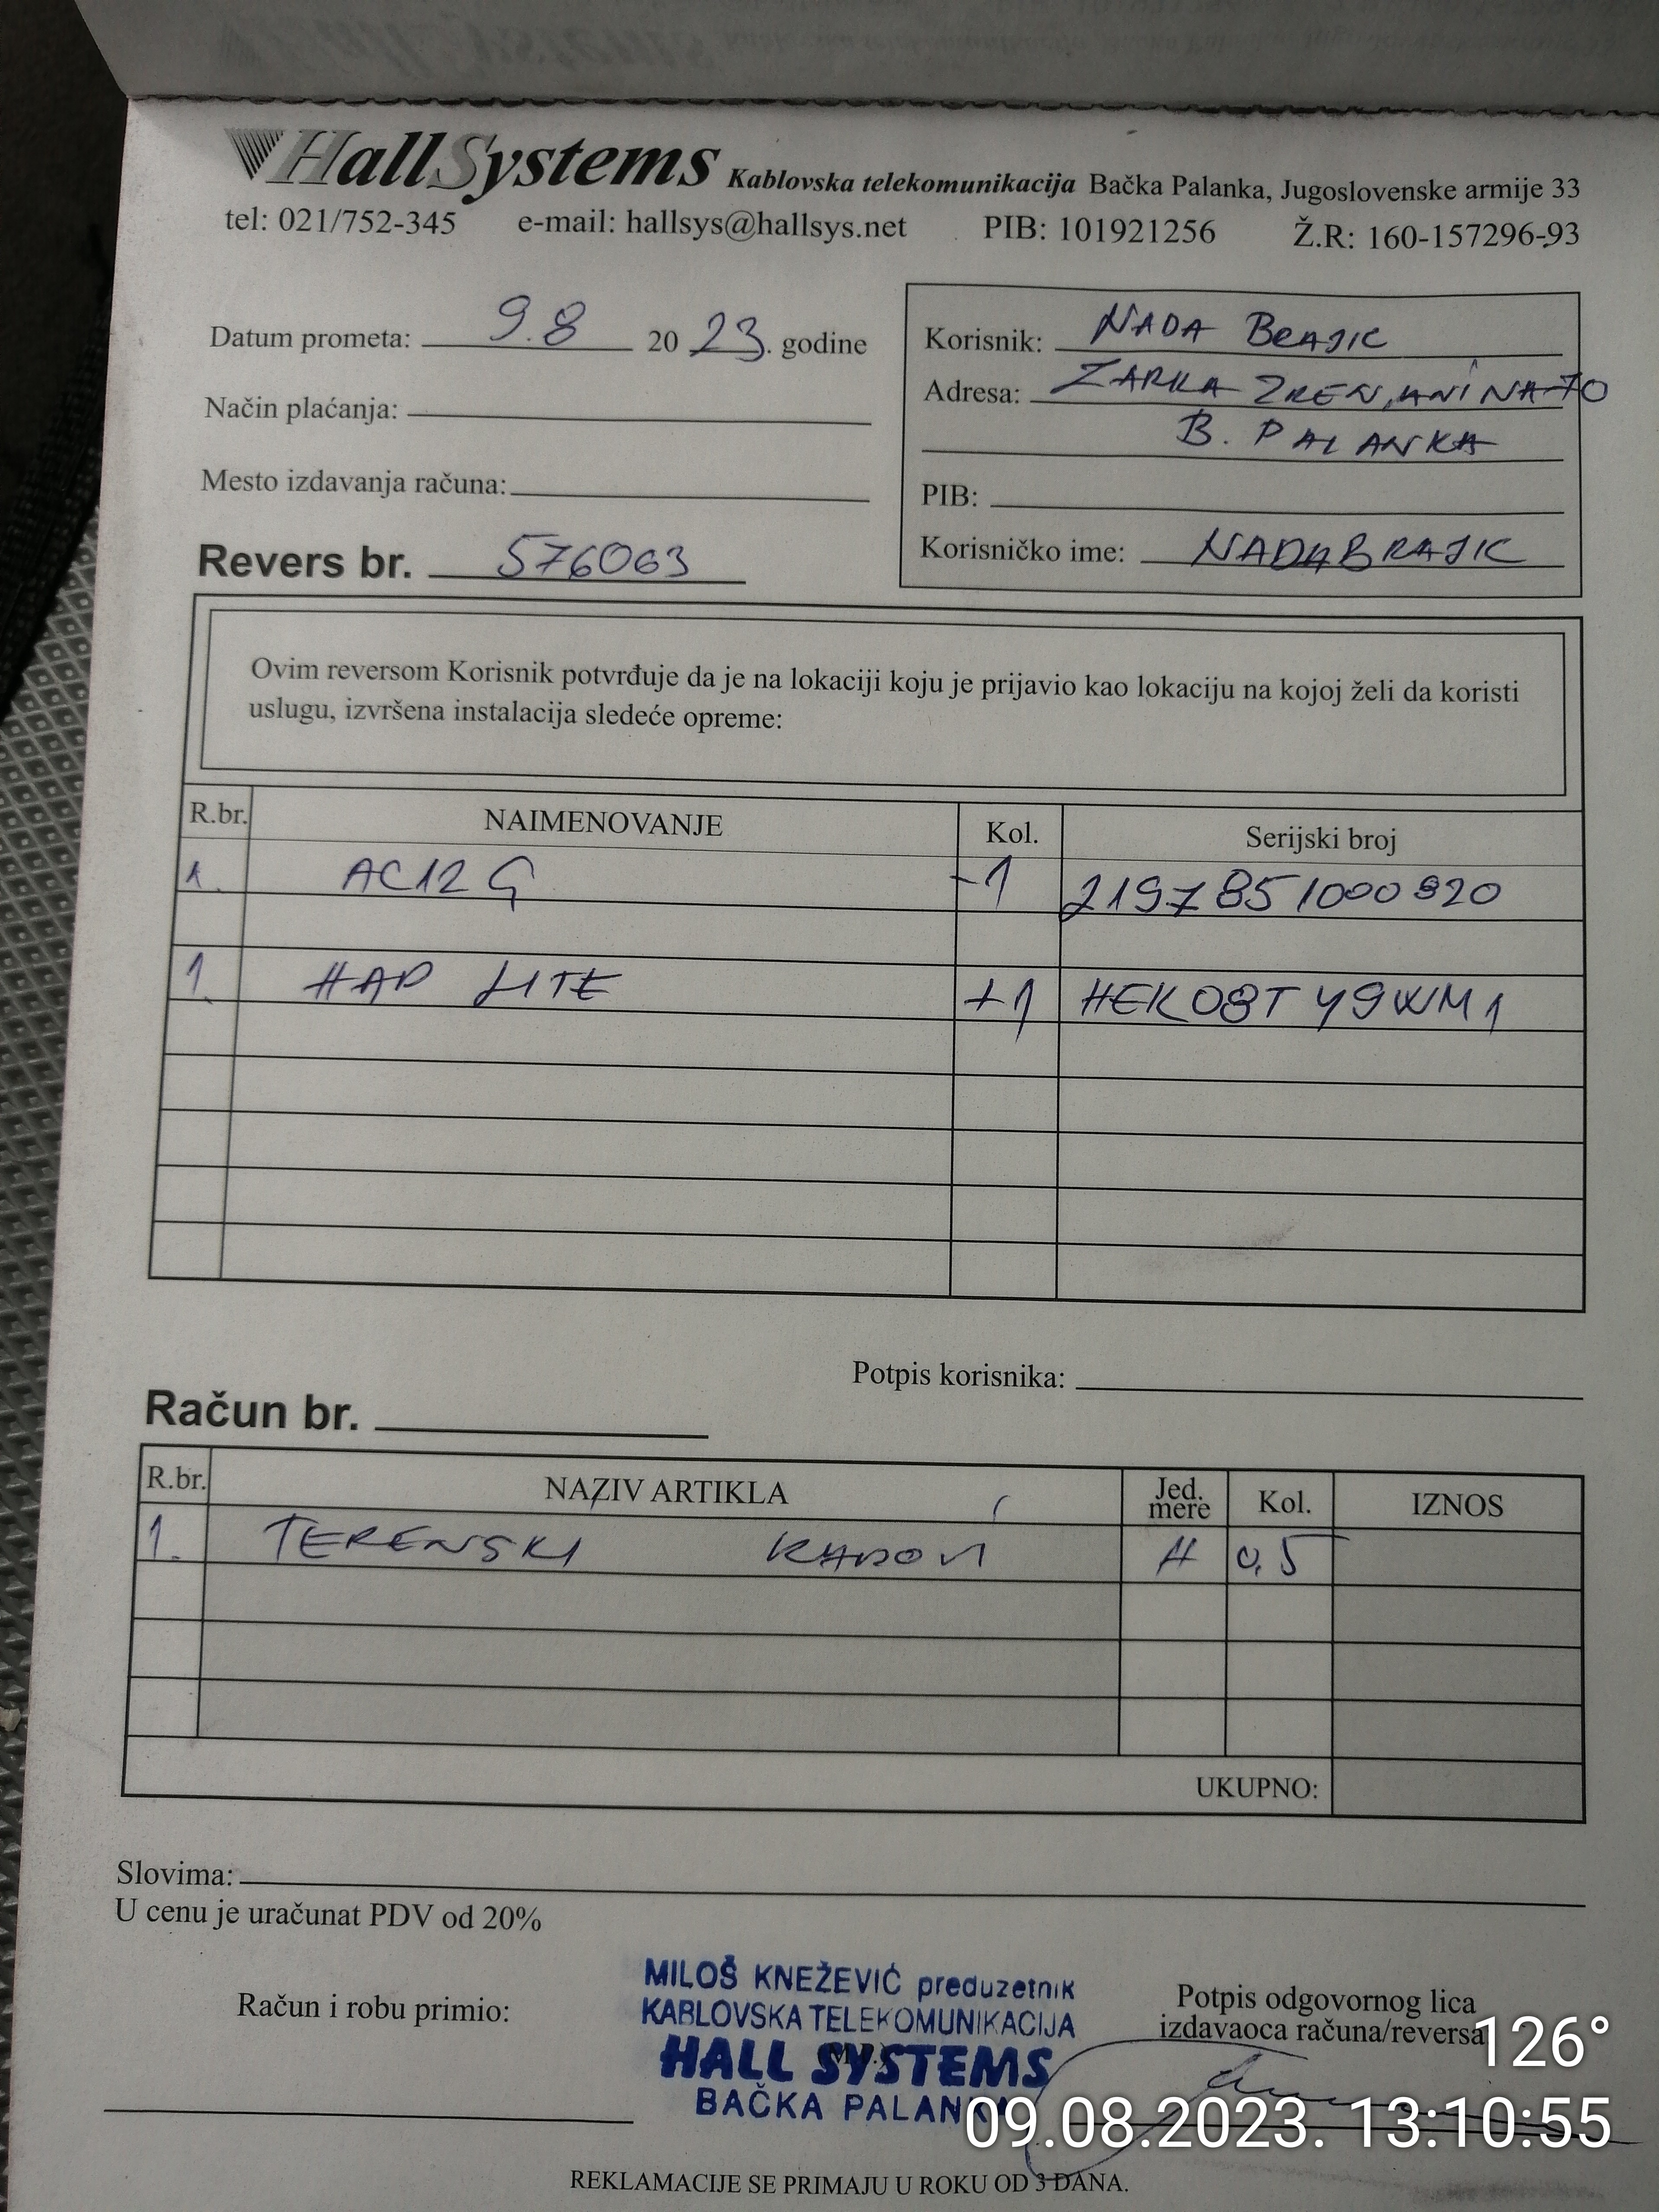 HallSystems Kablovska telekomunikacija Bačka Palanka, Jugoslovenske armije 33
tel: 021/752-345 e-mail: hallsys@hallsys.net PIB: 101921256 Ž.R: 160-157296-93
Datum prometa: 9.8 2023. godine
Način plaćanja:
Mesto izdavanja računa:
Revers br. 576063
Korisnik: NADA BRAJIC
Adresa: ZARKA ZRENJANINA 70
B. PALANKA
PIB:
Korisničko ime: NADABRAJIC
Ovim reversom Korisnik potvrđuje da je na lokaciji koju je prijavio kao lokaciju na kojoj želi da koristi
uslugu, izvršena instalacija sledeće opreme:
R.br. NAIMENOVANJE Kol. Serijski broj
1. AC12G -1 2197851000920
1. HAP LITE +1 HEK08TY9WM1
Potpis korisnika:
Račun br.
R.br. NAZIV ARTIKLA Jed. mere Kol. IZNOS
1. TERENSKI RADOVI H 0,5
UKUPNO:
Slovima:
U cenu je uračunat PDV od 20%
Račun i robu primio:
MILOŠ KNEŽEVIĆ preduzetnik
KABLOVSKA TELEKOMUNIKACIJA
HALL SYSTEMS
BAČKA PALANKA
Potpis odgovornog lica
izdavaoca računa/reversa
126°
09.08.2023. 13:10:55
REKLAMACIJE SE PRIMAJU U ROKU OD 3 DANA.